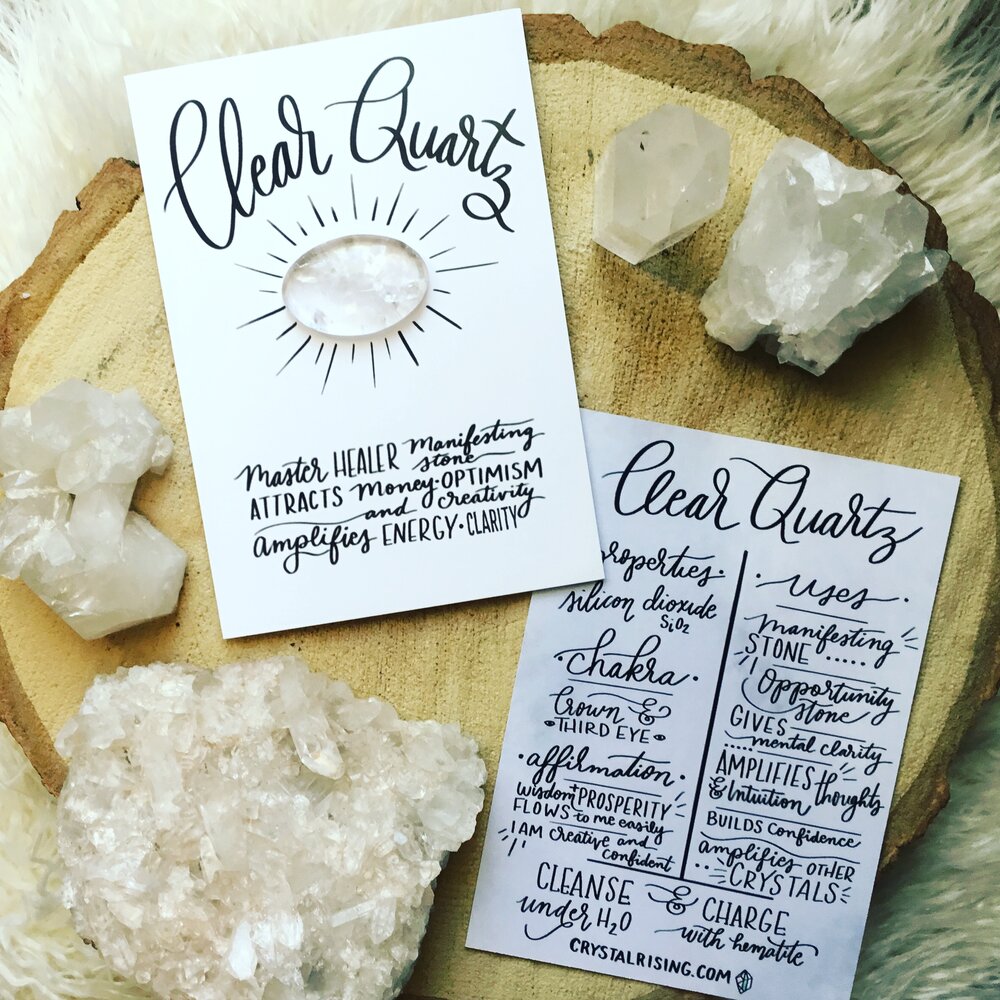 Clear Quartz
Master HEALER Manifesting
stone
ATTRACTS Money · OPTIMISM
and creativity
Amplifies ENERGY · CLARITY
Clear Quartz
properties ·
silicon dioxide
SiO2
· chakra ·
Crown &
• THIRD EYE •
· affirmation ·
wisdom + PROSPERITY
FLOWS to me easily
I AM creative and
confident
· uses ·
manifesting
STONE .....
Opportunity
stone
GIVES
.... mental clarity
AMPLIFIES thoughts
& Intuition
BUILDS confidence
amplifies OTHER
CRYSTALS
CLEANSE & CHARGE
under H2O with hematite
CRYSTALRISING.COM